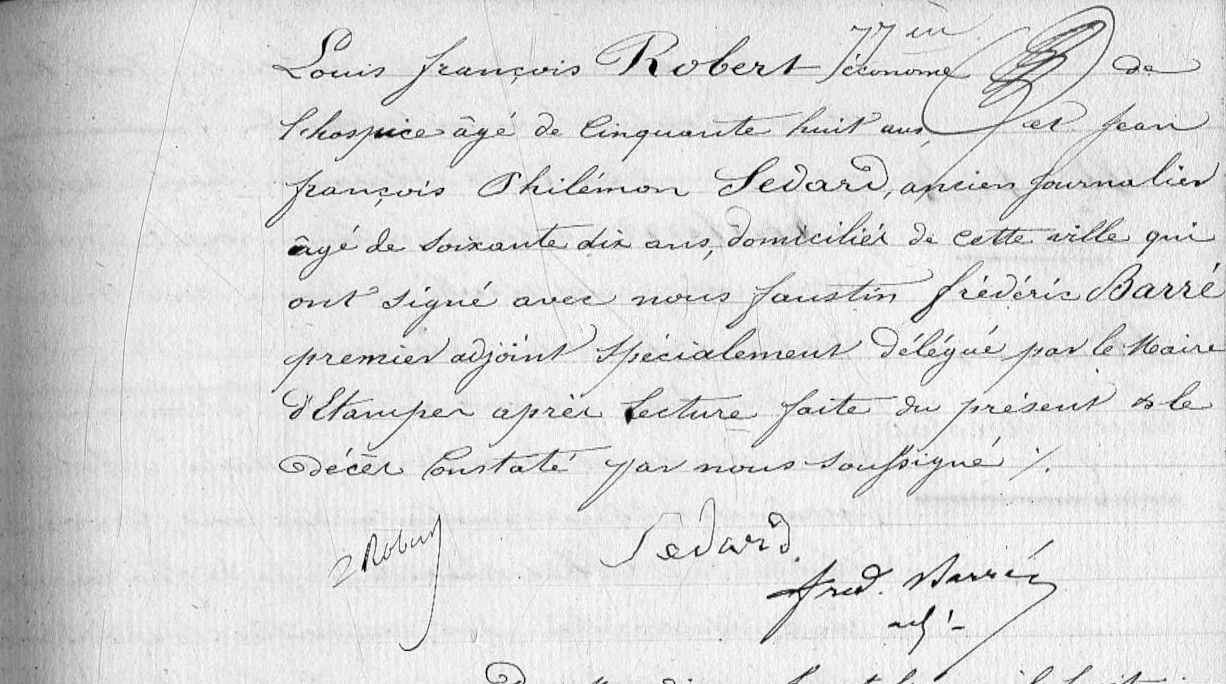 Louis françois Robert économe de
l'hospice âgé de Cinquante huit ans, et Jean
françois Philémon Sedard, ancien journalier
âgé de soixante dix ans, domiciliés de cette ville qui
ont signé avec nous faustin frédéric Barré
premier adjoint spécialement délégué par le Maire
d'Etampes après lecture faite du présent & le
décès Constaté par nous soussigné ./.
Robert Sedard
fred. Barré
adj